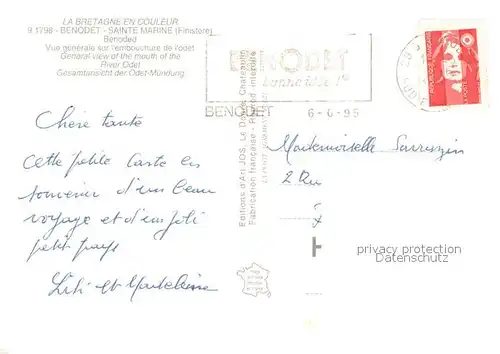 LA BRETAGNE EN COULEUR
9 1798 - BENODET - SAINTE MARINE (Finistère)
Benoded
Vue générale sur l'embouchure de l'odet
General view of the mouth of the
River Odet
Gesamtansicht der Odet-Mündung
BENODET
BENODET 6-6-95
RÉPUBLIQUE FRANÇAISE
LA POSTE
Editions d'Art JOS, Le Doaré, Chateaulin
Fabrication française - Reprod. interdite
Chère tante
Cette petite carte en
souvenir d'un beau
voyage et d'un joli
petit pays
Lili et Madeleine
Mademoiselle Sarrazin
2 Rue
privacy protection
Datenschutz